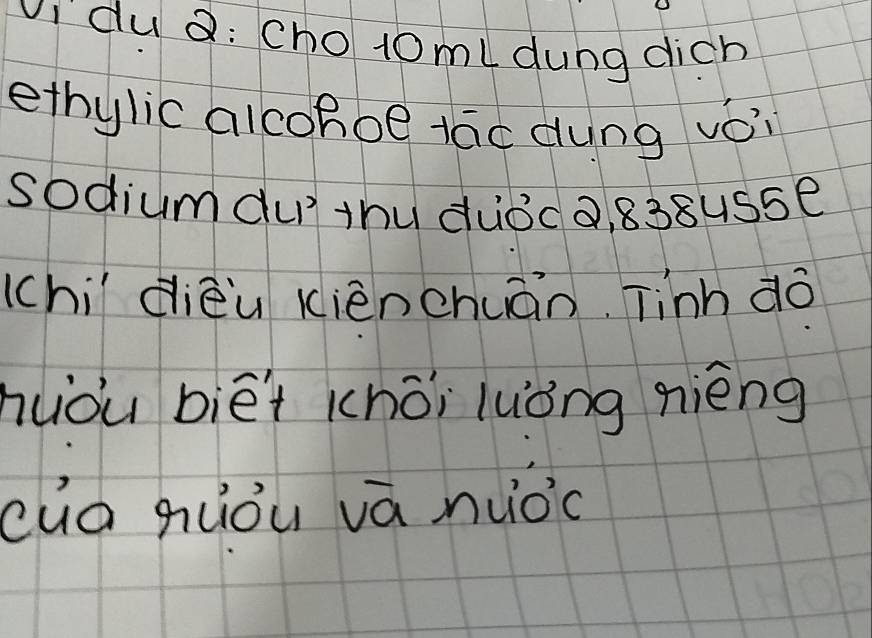 Ví dụ 2: Cho 10ml dung dịch
ethylic alcohol tác dụng với
sodium dư thu được 2,838455l
khí điều kiện chuẩn. Tính độ
rượu biết khối lượng riêng
của rượu và nước